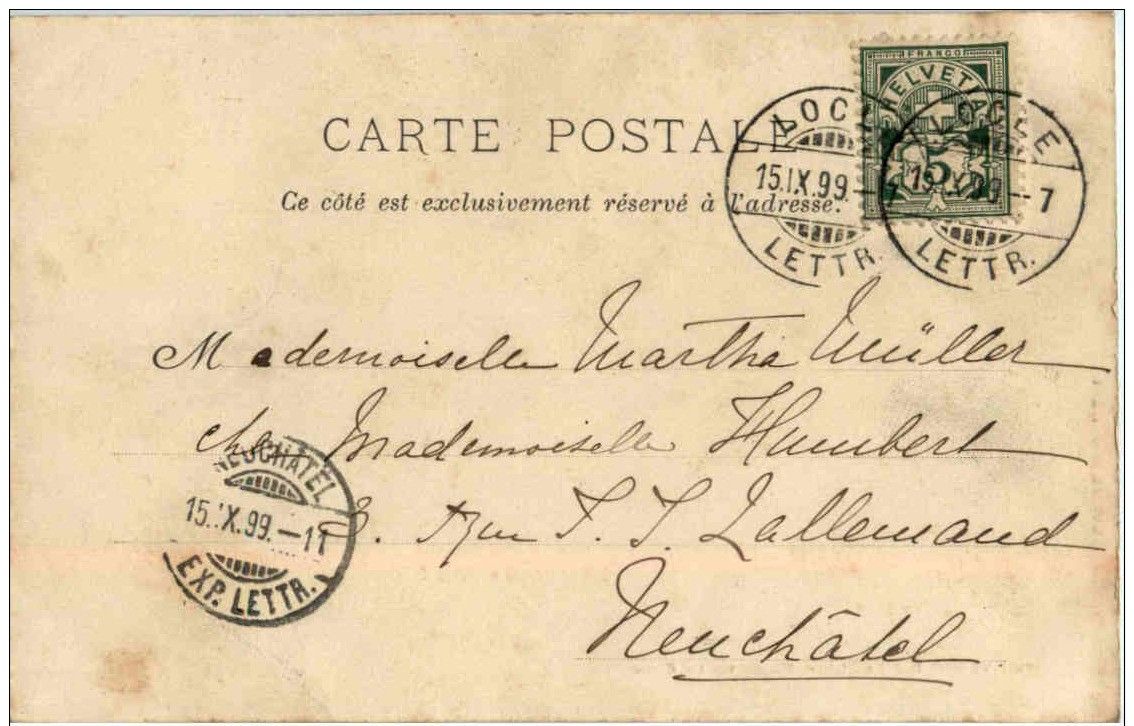 FRANCO
HELVETIA
5
CARTE POSTALE
Ce côté est exclusivement réservé à l'adresse.
LOCLE
15.IX.99.–7
LETTR.
LOCLE
15.IX.99–7
LETTR.
Mademoiselle Martha Müller
chez Mademoiselle Humbert
rue J. J. Lallemand
Neuchâtel
NEUCHÂTEL
15.IX.99.–11
EXP. LETTR.